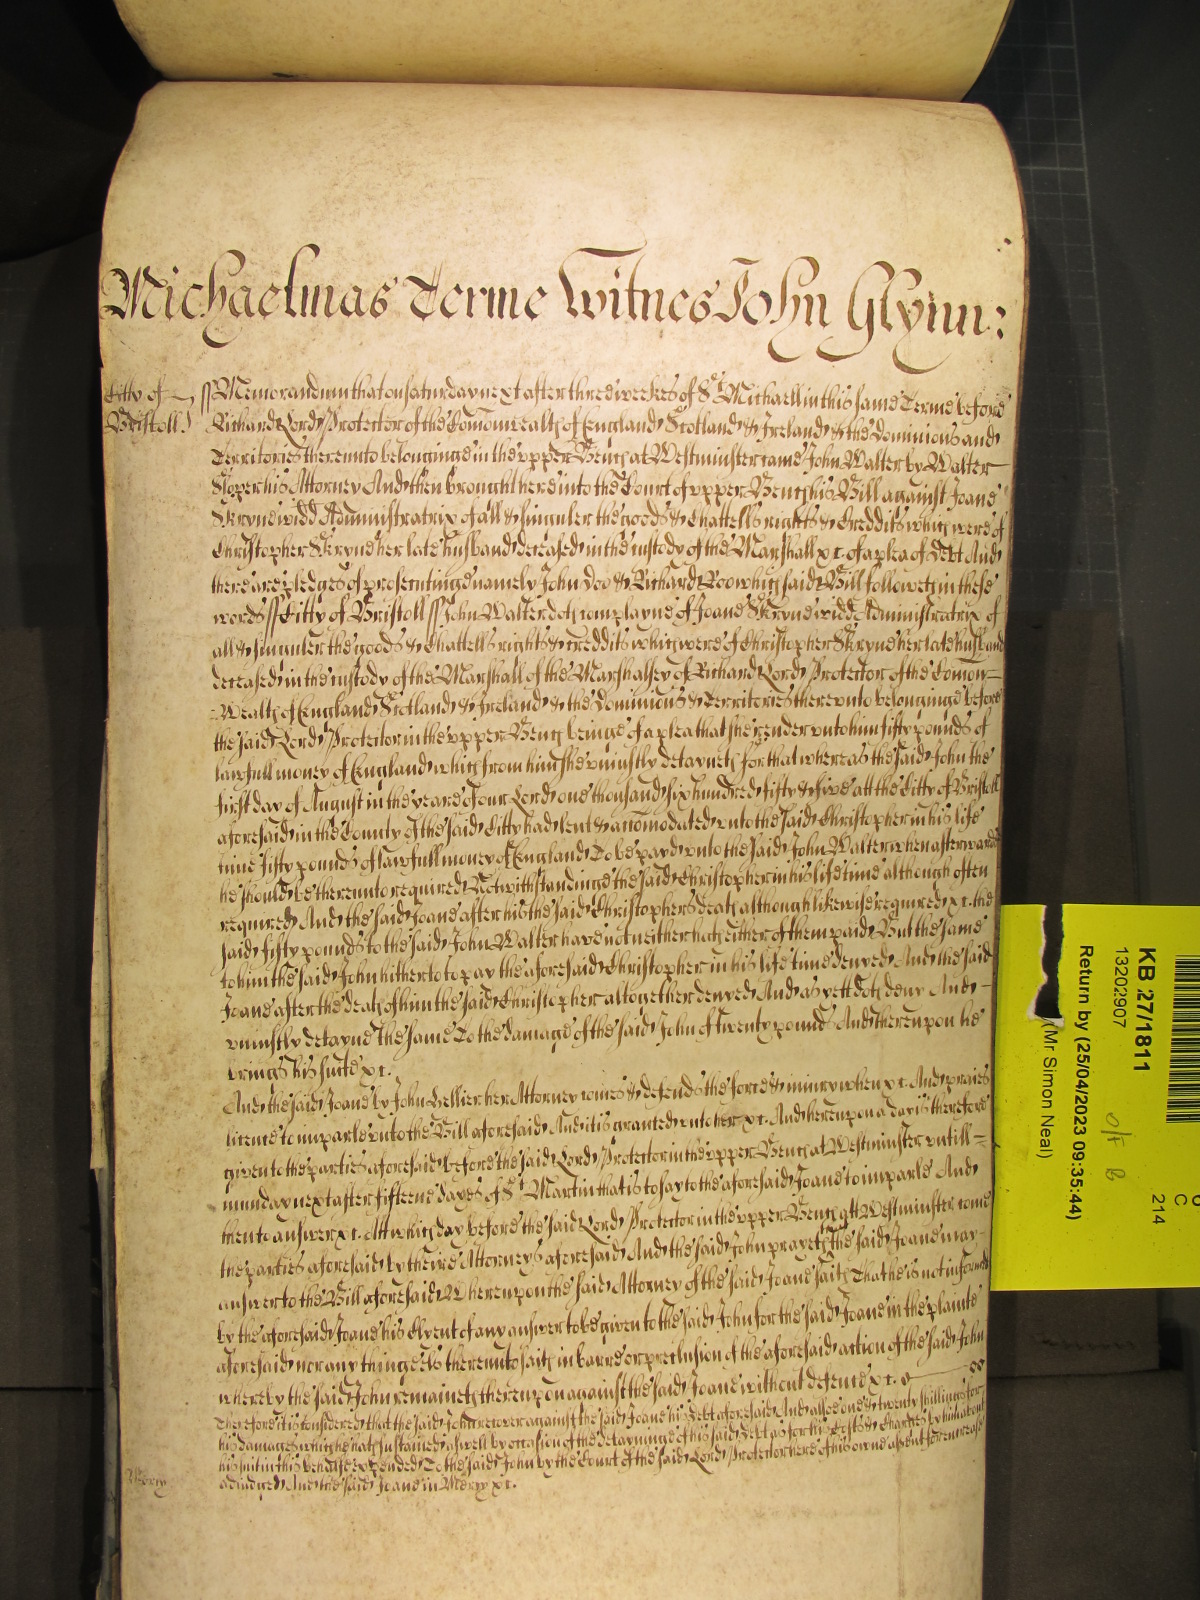 Michaelmas Terme Witnes John Glynn:
Citty of
Bristoll
ss Memorandum that on Saturday next after three weekes of St Michaell in this same Terme before
Richard Lord Protector of the Comonwealth of England Scotland & Ireland & the Dominions and
Territories thereunto belonginge in the upper Bench at Westminster came John Walter by Walter
Sloper his Attorney And then brought here into the Court of upper Bench his Bill against Joane
Skryne widd Administratrix of all & singuler the goods & Chattells rights & Creddits which were of
Christopher Skryne her late husband deceased in the custody of the Marshall xc. of a plea of Debt And
there are pledges of prosecutinge namely John Doo & Richard Roo which said Bill followeth in these
words ss Citty of Bristoll ss John Walter doth complayne of Joane Skryne widd Administratrix of
all & singuler the goods & Chattells rights & creddits which were of Christopher Skryne her late husband
deceased in the custody of the Marshall of the Marshalsey of Richard Lord Protector of the Comon-
Wealth of England Scotland & Ireland & the Dominions & Territories thereunto belonginge before
the said Lord Protector in the upper Bench beinge of a plea that she render unto him fifty pounds of
lawfull money of England which from him she uniustly detayneth for that whereas the said John the
first day of August in the yeare of our Lord one thousand six hundred fifty & five att the Citty of Bristoll
aforesaid in the County of the said Citty had lent & accomodated unto the said Christopher in his life
time fifty pounds of lawfull money of England To be payd unto the said John Walter when afterwards
he should be thereunto required Notwithstandinge the said Christopher in his life time although often
required And the said Joane after his the said Christophers death although likewise required xc. the
said fifty pounds to the said John Walter have not neither hath either of them paid But the same
to him the said John hitherto to pay the aforesaid Christopher in his life time denyed And the said
Joane after the death of him the said Christopher altogether denyed And as yett doth deny And
uniustly detayne the same To the damage of the said John of twenty pounds And thereupon he
brings his suite xc.
And the said Joane by John Hellier her Attorney comes & defends the force & iniury when xc. And praies
licence to imparle unto the Bill aforesaid And it is granted unto her xc. And hereupon a day is therefore
given to the parties aforesaid before the said Lord Protector in the upper Bench at Westminster untill
munday next after fifteene dayes of St Martin that is to say to the aforesaid Joane to imparle And
then to answer xc. Att which day before the said Lord Protector in the upper Bench att Westminster come
the parties aforesaid by theire Attorneys aforesaid And the said John prayeth the said Joane may
answer to the Bill aforesaid Whereupon the said Attorney of the said Joane saith That he is not informed
by the aforesaid Joane his Clyent of any answer to be given to the said John for the said Joane in the plainte
aforesaid nor any thinge els thereunto saith in barre or preclusion of the aforesaid action of the said John
whereby the said John remaineth thereupon against the said Joane without defence xc.
Therefore it is considered that the said John recover against the said Joane his Debt aforesaid And alsoe one & twenty shillings for
his damages which he hath sustained aswell by occasion of the detayninge of his said Debt as for his Costs & Charges by him about
his suit in this behalfe expended To the said John by the Court of the said Lord Protector here of his owne assent for encrease
adiudged And the said Joane in Mercy xc.
Mercy
KB 27/1811
13202907
Return by (25/04/2023 09:35:44)
(Mr Simon Neal)
O/F B
C
214